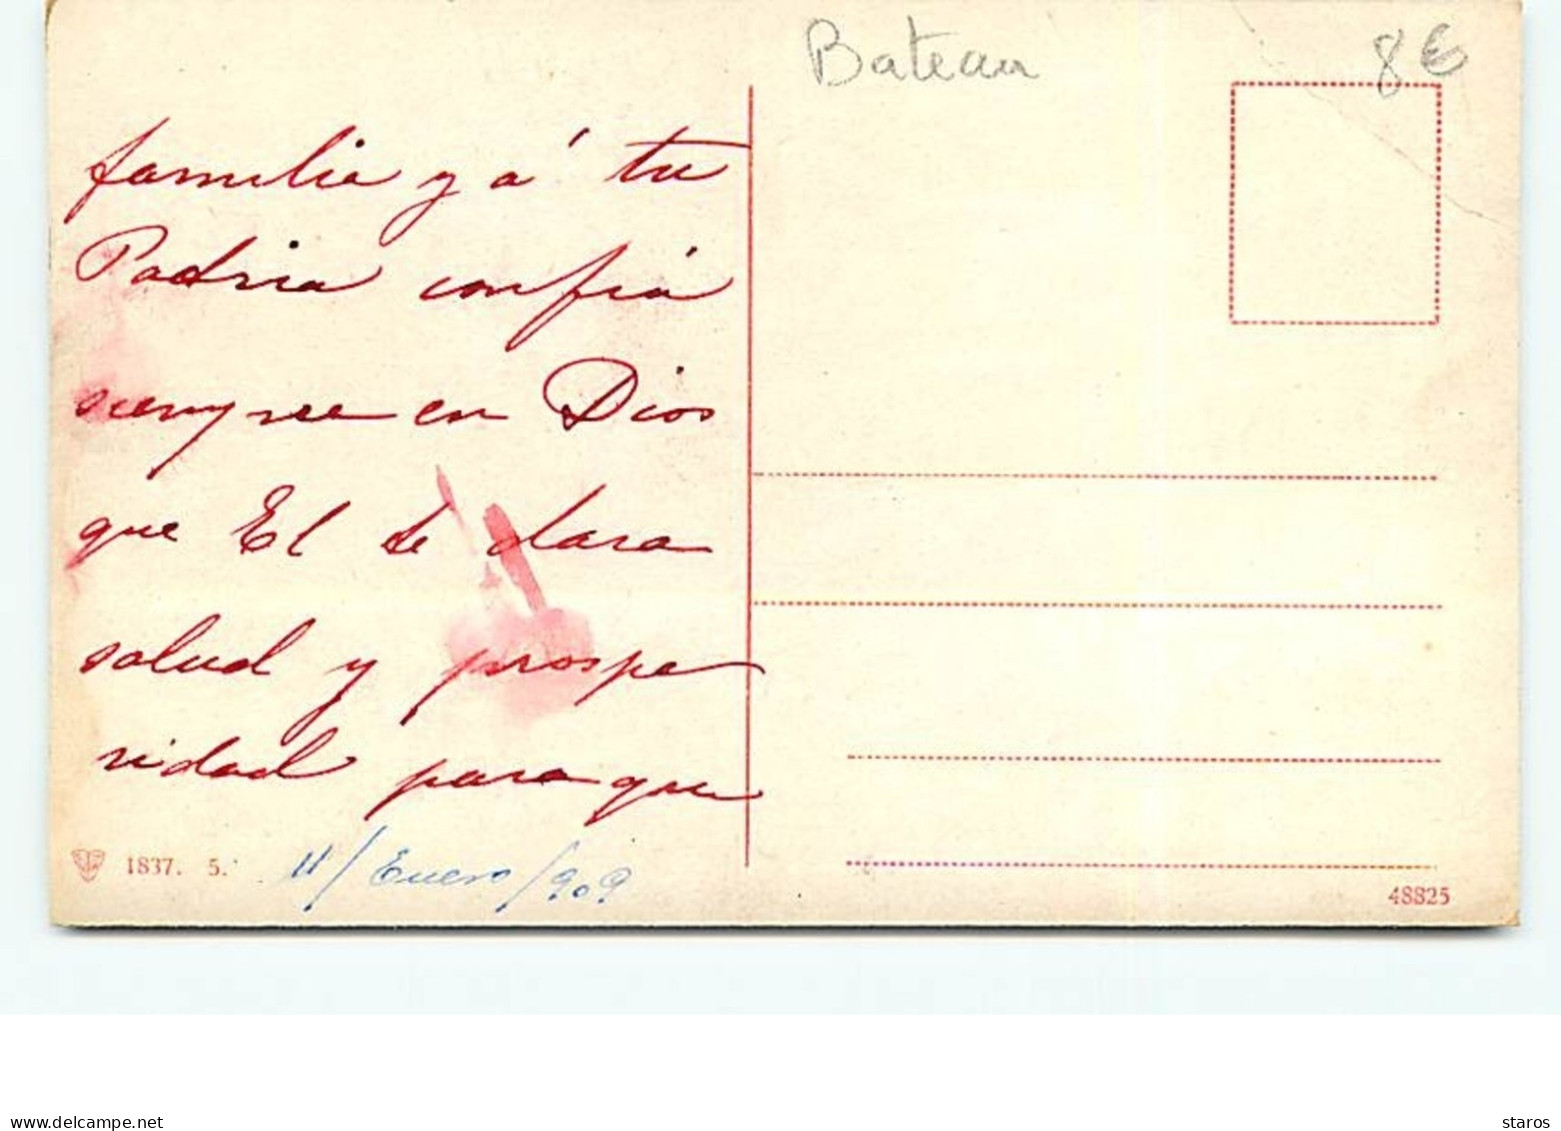 Bateau
8€
familia y á tu
Padria confiá
siempre en Dios
que El te dara
salud y prospe
ridad para que
1837. 5.
11/Enero/909
48825
www.delcampe.net
staros